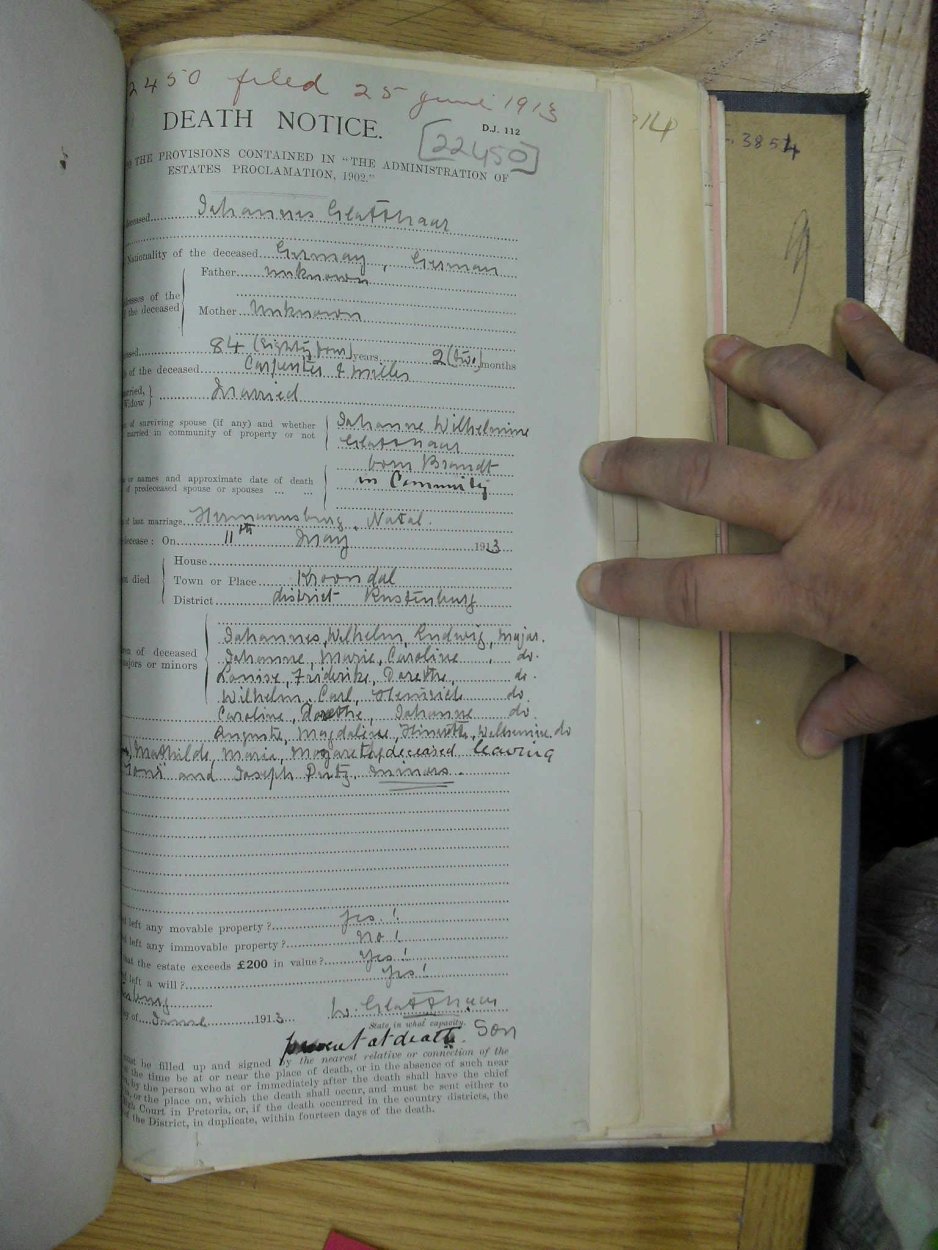 2450 filed 25 June 1913
DEATH NOTICE.
D.J. 112
22450
THE PROVISIONS CONTAINED IN "THE ADMINISTRATION OF
ESTATES PROCLAMATION, 1902."
Johannes Glatthaar
Nationality of the deceased Germany, German
Father unknown
esses of the
the deceased
Mother Unknown
84 (Eighty four) years 2 (two) months
of the deceased Carpenter & Miller
arried,
Widow } Married
of surviving spouse (if any) and whether
married in community of property or not
Johanne Wilhelmine
Glatthaar
born Brandt
or names and approximate date of death
of predeceased spouse or spouses
in Community
of last marriage Hermannsburg, Natal.
decease: On 11th May 1913
House
died Town or Place Kroondal
District district Rustenburg
Johannes, Wilhelm, Ludwig, major.
en of deceased
majors or minors
Johanne, Marie, Caroline, do.
Louise, Friderike, Dorethe, do.
Wilhelm, Carl, Heinrich do
Caroline, Dorethe, Johanne do.
Auguste, Magdaline, Wilhelmine do
Mathilde, Maria, Margarethe deceased leaving
and Joseph minors.
left any movable property? Yes!
left any immovable property? No!
that the estate exceeds £200 in value? Yes!
left a will? Yes!
of June 1913
W. Glatthaar
State in what capacity.
present at death. Son
must be filled up and signed by the nearest relative or connection of the
at the time be at or near the place of death, or in the absence of such near
by the person who at or immediately after the death shall have the chief
or the place on, which the death shall occur, and must be sent either to
Court in Pretoria, or, if the death occurred in the country districts, the
of the District, in duplicate, within fourteen days of the death.
314
3854